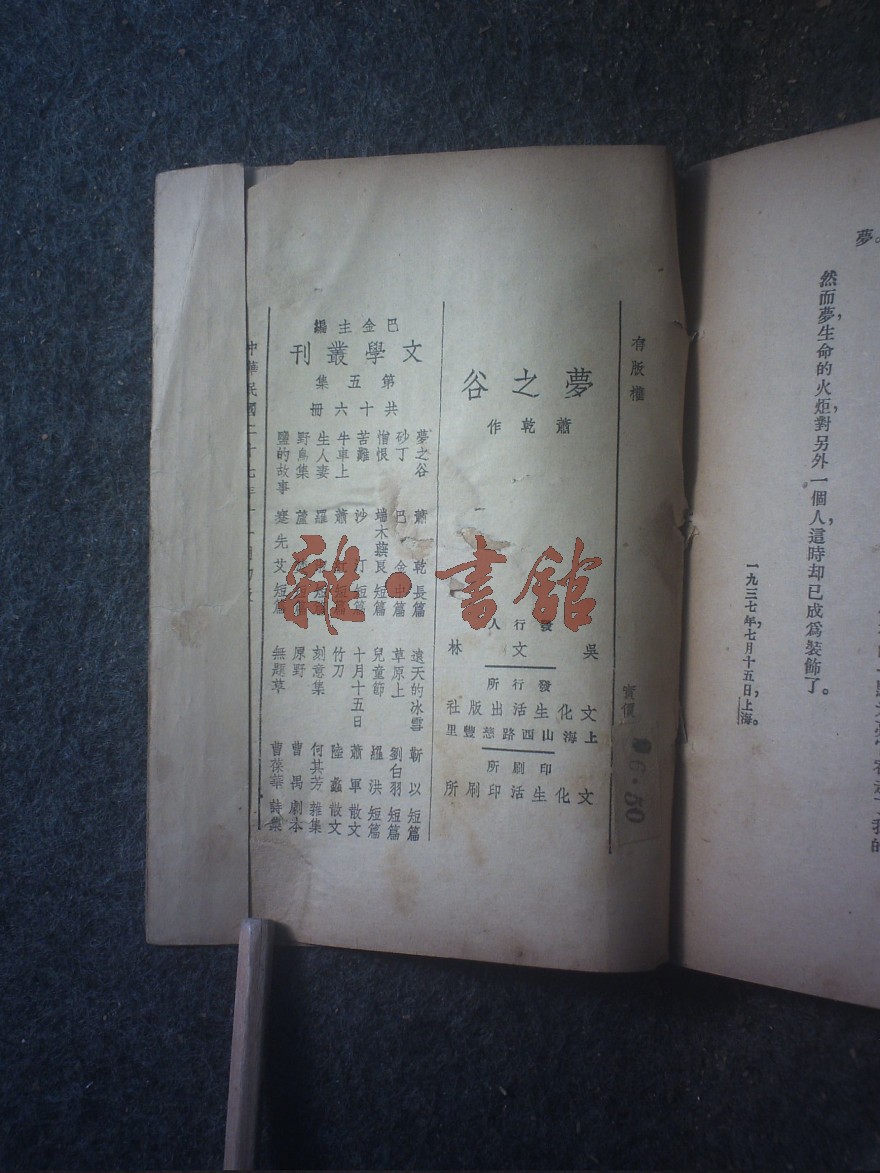 夢。
然而夢,生命的火炬,對另外一個人,這時却已成爲裝飾了。
一九三七年,七月十五日,上海。
有版權
實價
6.50
夢之谷
蕭乾作
發行人
吳文林
發行所
文化生活出版社
上海山西路慈豐里
印刷所
文化生活印刷所
巴金主編
文學叢刊
第五集
共十六冊
夢之谷 蕭乾 長篇
砂丁 巴金 中篇
憎恨 端木蕻良 短篇
苦難 沙汀 短篇
牛車上 蕭紅 短篇
生人妻 羅 短篇
野鳥集 蘆 短篇
鹽的故事 蹇先艾 短篇
遠天的冰雪 靳以 短篇
草原上 劉白羽 短篇
兒童節 羅洪 短篇
十月十五日 蕭軍 散文
竹刀 陸蠡 散文
刻意集 何其芳 雜集
原野 曹禺 劇本
無題草 曹葆華 詩集
中華民國二十七年
雜·書館